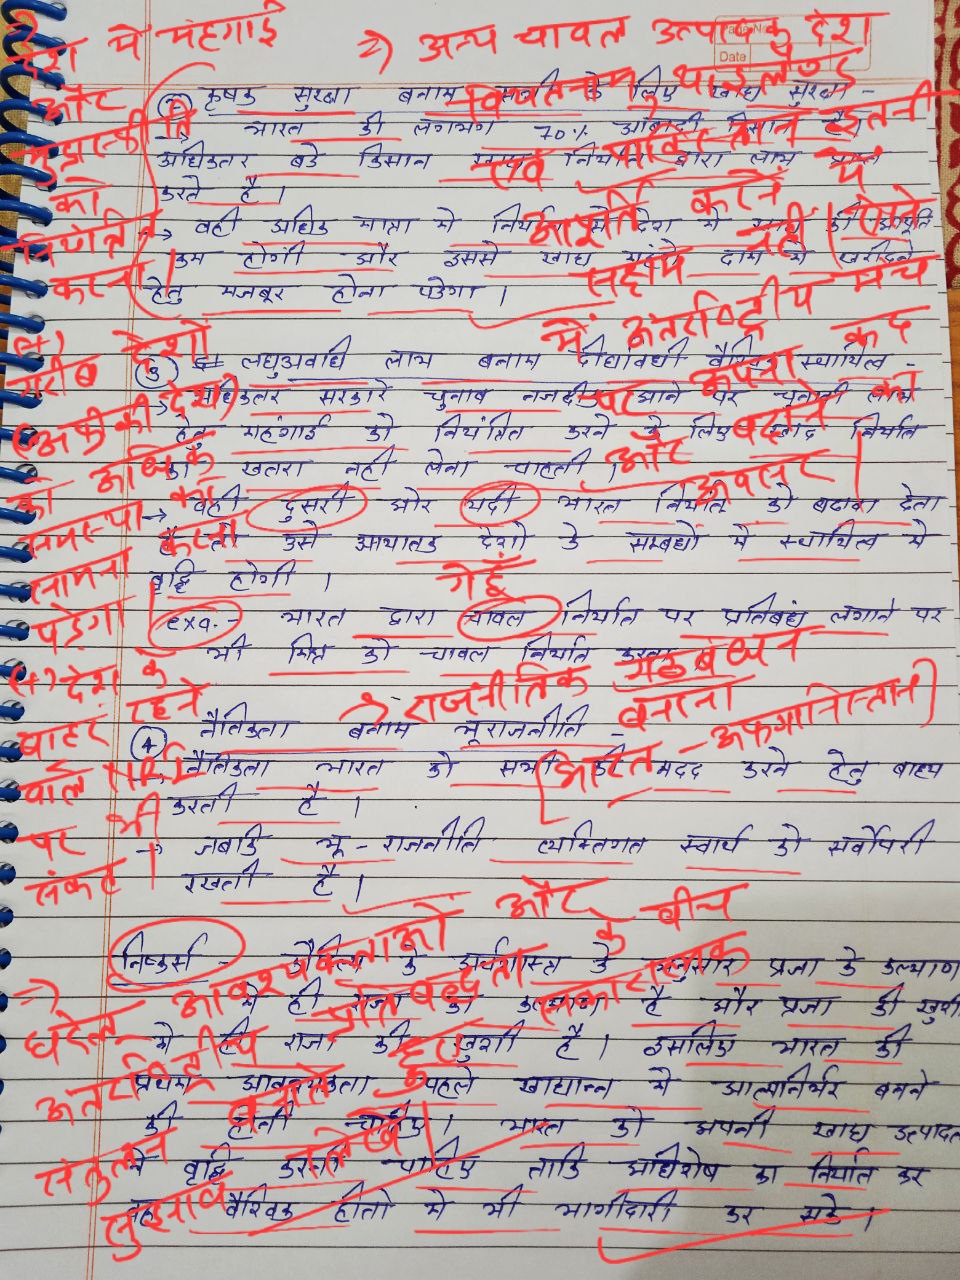 देश में मंहगाई
और
का
नियंत्रित
करना
(→) गरीब देशों
(अफ्रीकी देश)
को अधिक
समस्या का
सामना करना
पड़ेगा
(→) देश के
बाहर रहने
वाले NRI
पर भी
संकट।
⇒) अन्य चावल उत्पादक देश
Date
वियतनाम, थाईलैण्ड
एवं पाकिस्तान इतनी
आपूर्ति करने में
सक्षम नहीं (ऐसे
में अंतर्राष्ट्रीय मंच
पर अपना कद
और बढ़ाने
का अवसर।
② कृषक सुरक्षा बनाम सभी के लिए खाद्य सुरक्षा -
→ भारत की लगभग 70% आबादी किसान है।
अधिकतर बडे किसान निर्यात द्वारा लाभ प्राप्त
करते है।
→ वही अधिक मात्रा मे निर्यात से देश मे की आपूर्ति
कम होगी और इससे खाद्य महंगे दाम मे खरीदने
हेतु मजबूर होना पडेगा।
③ लघुअवधि लाभ बनाम दीर्घावधी वैश्विक स्थायित्व -
→ अधिकतर सरकारे चुनाव नजदीक आने पर चुनावी लाभ
हेतु महंगाई को नियंत्रित करने के लिए खाद्य निर्यात
का खतरा नही लेना चाहती।
→ वही दुसरी ओर यदी भारत निर्यात को बढावा देता
है तो उसे आयातक देशो के सम्बधो मे स्थायित्व मे
वृद्धि होगी।
गेहूँ
exa. - भारत द्वारा चावल निर्यात पर प्रतिबंध लगाने पर
भी मिस्र को चावल निर्यात करना
→ राजनीतिक गठबंधन
बनाना
[भारत - अफगानिस्तान]
④ नैतिकता बनाम भूराजनीति -
→ नैतिकता भारत को सभी की मदद करने हेतु बाध्य
करती है।
→ जबकि भू-राजनीति व्यक्तिगत स्वार्थ को सर्वोपरी
रखती है।
निष्कर्स - कौटिल्य के अर्थशास्त्र के अनुसार प्रजा के कल्याण
मे ही राजा का कल्याण है और प्रजा की खुशी
मे ही राजा की खुशी है। इसलिए भारत की
प्रथम आवश्यकता पहले खाद्यान्न मे आत्मनिर्भर बनने
की होनी चाहिए। भारत को अपनी खाद्य उत्पादन
मे वृद्धि करनी चाहिए ताकि अधिशेष का निर्यात कर
वह वैश्विक हीतो मे भी भागीदारी कर सके।
⇒) घरेलू आवश्यकताओं और
अंतर्राष्ट्रीय प्रतिबद्धता के बीच
संतुलन बनाते हुए सकारात्मक
सुझाव लिखें।